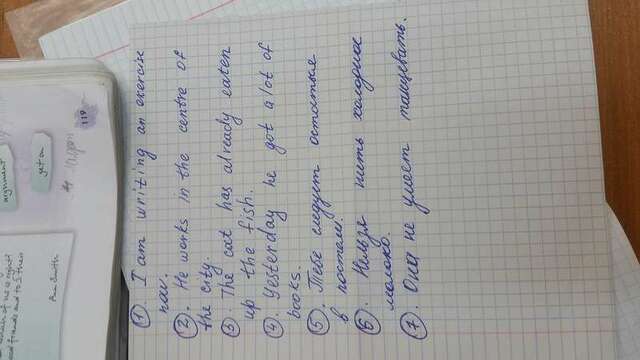 argument
get on
Ann Smith
119
1. I am writing an exercise
nav.
2. He works in the centre of
the city.
3. The cat has already eaten
up the fish.
4. Yesterday he got a lot of
books.
5. Тебе следует остаться
в постели.
6. Нельзя пить холодное
молоко.
7. Она не умеет танцевать.